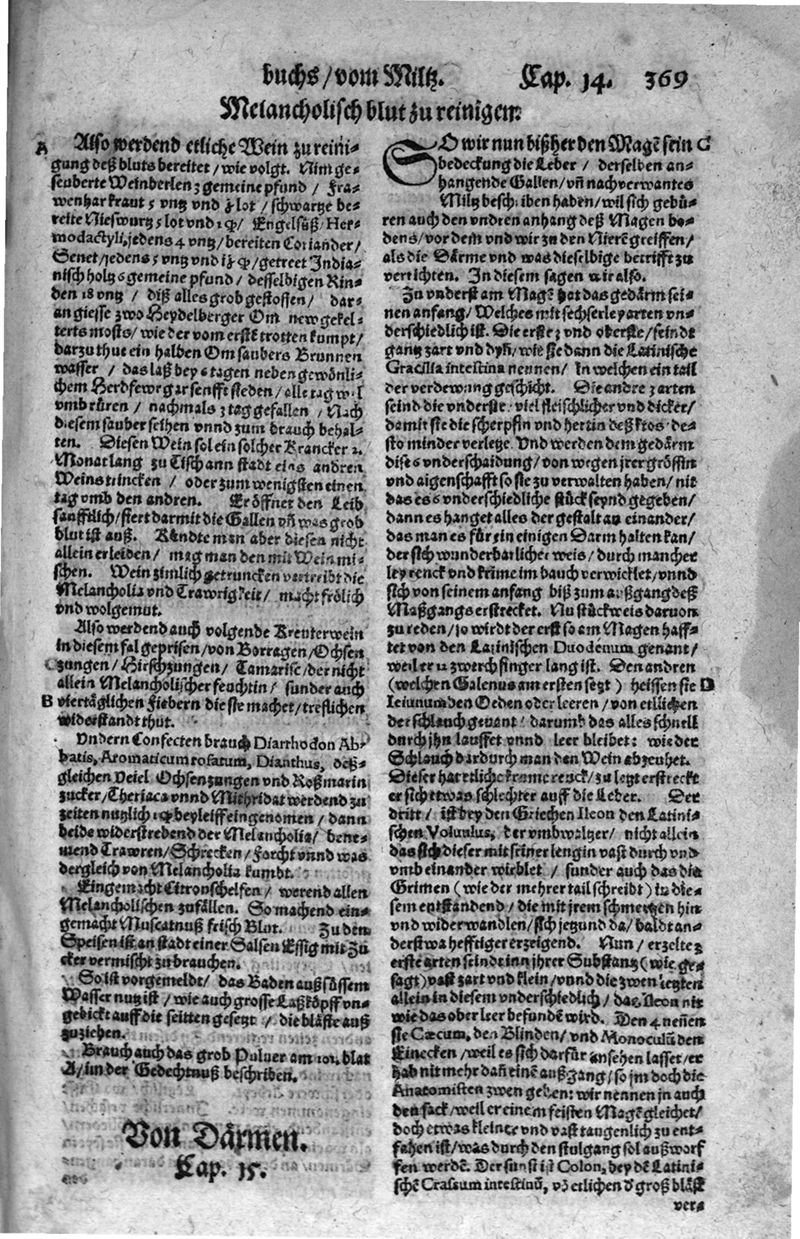 buchs / vom Miltz. Cap. 14. 369
Melancholisch blut zu reinigen.
A Also werdend etliche Wein zu reini-
gung deß bluts bereitet / wie volgt. Nim ge-
seuberte Weinberlen 3 gemeine pfund / Fra-
wenhar kraut 5 vntz vnd lot / schwartze be-
reite Nieswurtz 5 lot vnd Engelsüß / Her-
modactyli, jedens 4 vntz / bereiten Coriander /
Senet / jedens 5 vntz vnd getreet India-
nisch holtz 6 gemeine pfund / desselbigen Rin-
den 18 vntz / diß alles grob gestossen / dar-
an giesse zwo Heydelberger Om new gekel-
terts mosts / wie der vom erstē trotten kumpt /
darzu thue ein halben Om saubers Brunnen
wasser / das laß bey 6 tagen neben gewönli-
chem Herdfewr gar senfft sieden / alle tag
vmb rüren / nachmals 3 tag gefallen / Nach
diesem sauber seihen vnnd zum brauch behal-
ten. Diesen Wein sol ein solcher Krancker 2.
Monat lang zu Tisch ann stadt eins andren
Weins trincken / oder zum wenigsten einen
tag vmb den andren. Er öffnet den Leib
sanfftlich / fiert darmit die Gallen vn̄ was grob
blut ist auß. Köndte man aber diesen nicht
allein erleiden / mag man den mit Wein mi-
schen. Wein zimlich getruncken vertreibt die
Melancholia vnd Trawrigkeit / macht frölich
vnd wolgemut.
Also werdend auch volgende Kreuterwein
in diesem fal geprisen / von Borragen / Ochsen
zungen / Hirschzungen / Tamarisc / der nicht
allein Melancholischer feuchtin / sunder auch
B viertäglichen Fiebern die sie machet / treflichen
widerstandt thut.
Vndern Confecten brauch Diarrhodon Ab-
batis, Aromaticum rosatum, Dianthus, deß-
gleichen Veiel Ochsenzungen vnd Roßmarin
zucker / Theriaca vnnd Mithridat werdend zu
zeiten nutzlich beyleiff eingenomen / dann
beide widerstrebend der Melancholia / bene-
mend Trawren / Schrecken / Forcht vnnd was
dergleich von Melancholia kumbt.
Eingemacht Citronschelfen / werend allen
Melancholischen zufällen. So machend ein-
gemacht Muscatnuß frisch Blut. Zu den
Speisen ist an stadt einer Salsen Essig mit Zu
cker vermischt zu brauchen.
So ist vorgemeldt / das Baden auß süssem
Wasser nutz ist / wie auch grosse Laßköpff vn-
gebickt auff die seitten gesetzt / die bläste auß
zuziehen.
Brauch auch das grob Puluer am 101. blat
A / in der Gedechtnuß beschriben.
Von Därmen.
Cap. 15.
SO wir nun bißher den Magē sein C
bedeckung die Leber / derselben an-
hangende Gallen / vn̄ nachverwantes
Miltz beschriben haben / wil sich gebü-
ren auch den vndren anhang deß Magen bo-
dens / vor dem vnd wir zu den Nierē greiffen /
als die Därme vnd was dieselbige betrifft zu
verrichten. In diesem sagen wir also.
Zu vnderst am Magē hat das gedärm sei-
nen anfang / Welches mit sechserley arten vn-
derschiedlich ist. Die erste 3 vnd oberste / seindt
gantz zart vnd dyn̄ / wie sie dann die Latinische
Gracilia intestina nennen / In welchen ein tail
der verdewung geschicht. Die andre 3 arten
seind die vnderste / viel fleischlicher vnd dicker /
damit sie die scherpfin vnd hertin deß ktos de-
sto minder verletze. Vnd werden dem gedärm
dise 6 vnderschaidung / von wegen jrer grössin
vnd aigenschafft so sie zu verwalten haben / nit
das es 6 vnderschiedliche stück seynd gegeben /
dann es hanget alles der gestalt an einander /
das man es für ein einigen Darm halten kan /
der sich wunderbarlicher weis / durch mancher
ley renck vnd krūme im bauch verwicklet / vnnd
sich von seinem anfang biß zum außgang deß
Maßgangs erstrecket. Nu stückweis daruon
zu reden / so wirdt der erst so am Magen haff-
tet von den Latinischen Duodenum genant /
weil er 12 zwerch finger lang ist. Den andren
(welchen Galenus am ersten setzt) heissen sie D
Ieiunum den Oeden oder leeren / von etlichen
der schlauch genant / darumb das alles schnell
durch jhn lauffet vnnd leer bleibet: wie der
Schlauch dardurch man den Wein abzeuhet.
Dieser hat etliche krumme renck / zu letzt erstreckt
er sich etwas schlechter auff die Leber. Der
dritt / ist bey den Griechen Ileon den Latini-
schen Voluulus, der vmbwältzer / nicht allein
das sich dieser mit seiner lengin vast durch vnd
vmb einander wicblet / sunder auch das die
Grimen (wie der mehrer tail schreibt) in die-
sem entstandend / die mit jrem schmertzen hin
vnd wider wandlen / sich jetzund da / baldt an-
derstwa hefftiger erzeigend. Nun / erzelte 3
erste arten seindt inn jhrer Substantz (wie ge-
sagt) vast zart vnd klein / vnnd die zwen letzten
allein in diesem vnderschiedlich / das Ileon nit
wie das ober leer befundē wird. Den 4 neñen
sie Cæcum, den Blinden / vnd Monoculū den
Einecken / weil es sich darfür ansehen lasset / er
hab nit mehr dan̄ einē außgang / so jm doch die
Anatomisten zwen geben: wir nennen jn auch
den sack / weil er einem feisten Magē gleichet /
doch etwas kleiner vnd vast taugenlich zu ent-
fahen ist / was durch den stulgang sol außworf
fen werdē. Der fünfft ist Colon, bey dē Latini-
schē Crassum intestinū, vō etlichen d' groß bläst
ver-